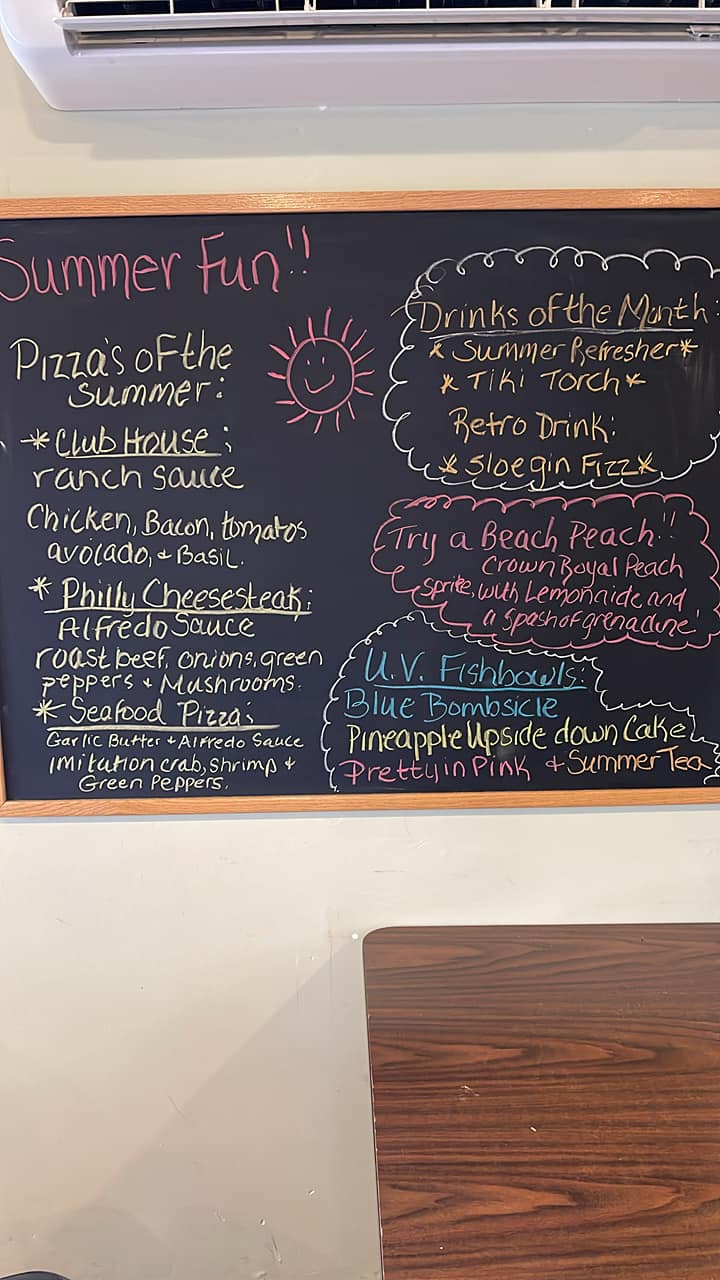 Summer Fun!!
Pizza's of the
Summer:
* Club House:
ranch sauce
Chicken, Bacon, tomatos
avocado, + Basil.
* Philly Cheesesteak:
Alfredo Sauce
roast beef, onions, green
peppers + Mushrooms.
* Seafood Pizza:
Garlic Butter + Alfredo Sauce
imitation crab, shrimp +
Green Peppers.
Drinks of the Month:
* Summer Refresher *
* Tiki Torch *
Retro Drink:
* Sloegin Fizz *
Try a Beach Peach!!
Crown Royal Peach
Sprite, with Lemonaide and
a spash of grenadine!
U.V. Fishbowls:
Blue Bombsicle
Pineapple Upside down Cake,
Pretty in Pink + Summer Tea